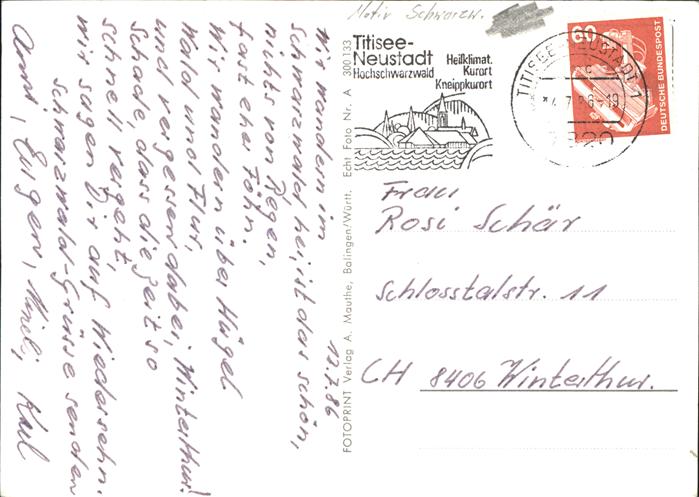 Motiv Schwarzw.
Titisee-
Neustadt
Hochschwarzwald
Heilklimat.
Kurort
Kneippkurort
TITISEE-NEUSTADT 1
60
DEUTSCHE BUNDESPOST
12.7.86
Wir wandern im
Schwarzwald hei, ist das schön,
nichts von Regen,
fast eher Föhn.
Wir wandern über Hügel
Wald und Flur,
und vergessen dabei, Winterthur!
Schade, dass die Zeit so
schnell vergeht,
wir sagen Dir auf Wiedersehn.
Schwarzwald-Grüsse senden
Eugen,
FOTOPRINT Verlag A. Mauthe, Balingen/Württ. Echt Foto Nr. A 300 133
Frau
Rosi Schär
Schlosstalstr. 11
CH 8406 Winterthur.